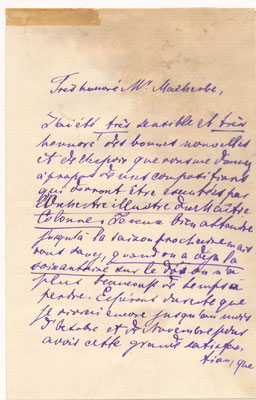 Très honoré Mr Malherbe,
J'ai été très sensible et très
honoré des bonnes nouvelles
et de l'espoir que vous me donnez
à propos de mes compositions
qui devront être executées par
l'Orchestre illustre du Maître
Colonne. Je veux bien attendre
jusqu'à la saison prochaine mais
vous savez, quand on a déjà la
soixantaine sur le dos on n'a
plus beaucoup de temps à
perdre. Espérons du reste que
je vivrai encore jusqu'au mois
d'Octobre et de Novembre pour
avoir cette grande satisfac-
tion, que